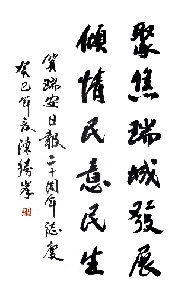 聚焦瑞城發展
傾情民意民生
賀瑞安日報二十周年誌慶
癸巳年春陳勝峯